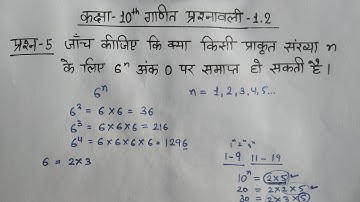 कक्षा-10th गणित प्रश्नावली-1.2
प्रश्न-5 जाँच कीजिए कि क्या किसी प्राकृत संख्या n
के लिए 6ⁿ अंक 0 पर समाप्त हो सकती है।
6ⁿ n = 1, 2, 3, 4, 5...
6² = 6×6 = 36
6³ = 6×6×6 = 216
6⁴ = 6×6×6×6 = 1296
6 = 2×3
1-9 11-19
10ⁿ = 2×5
20 = 2×2×5
30 = 2×3×5